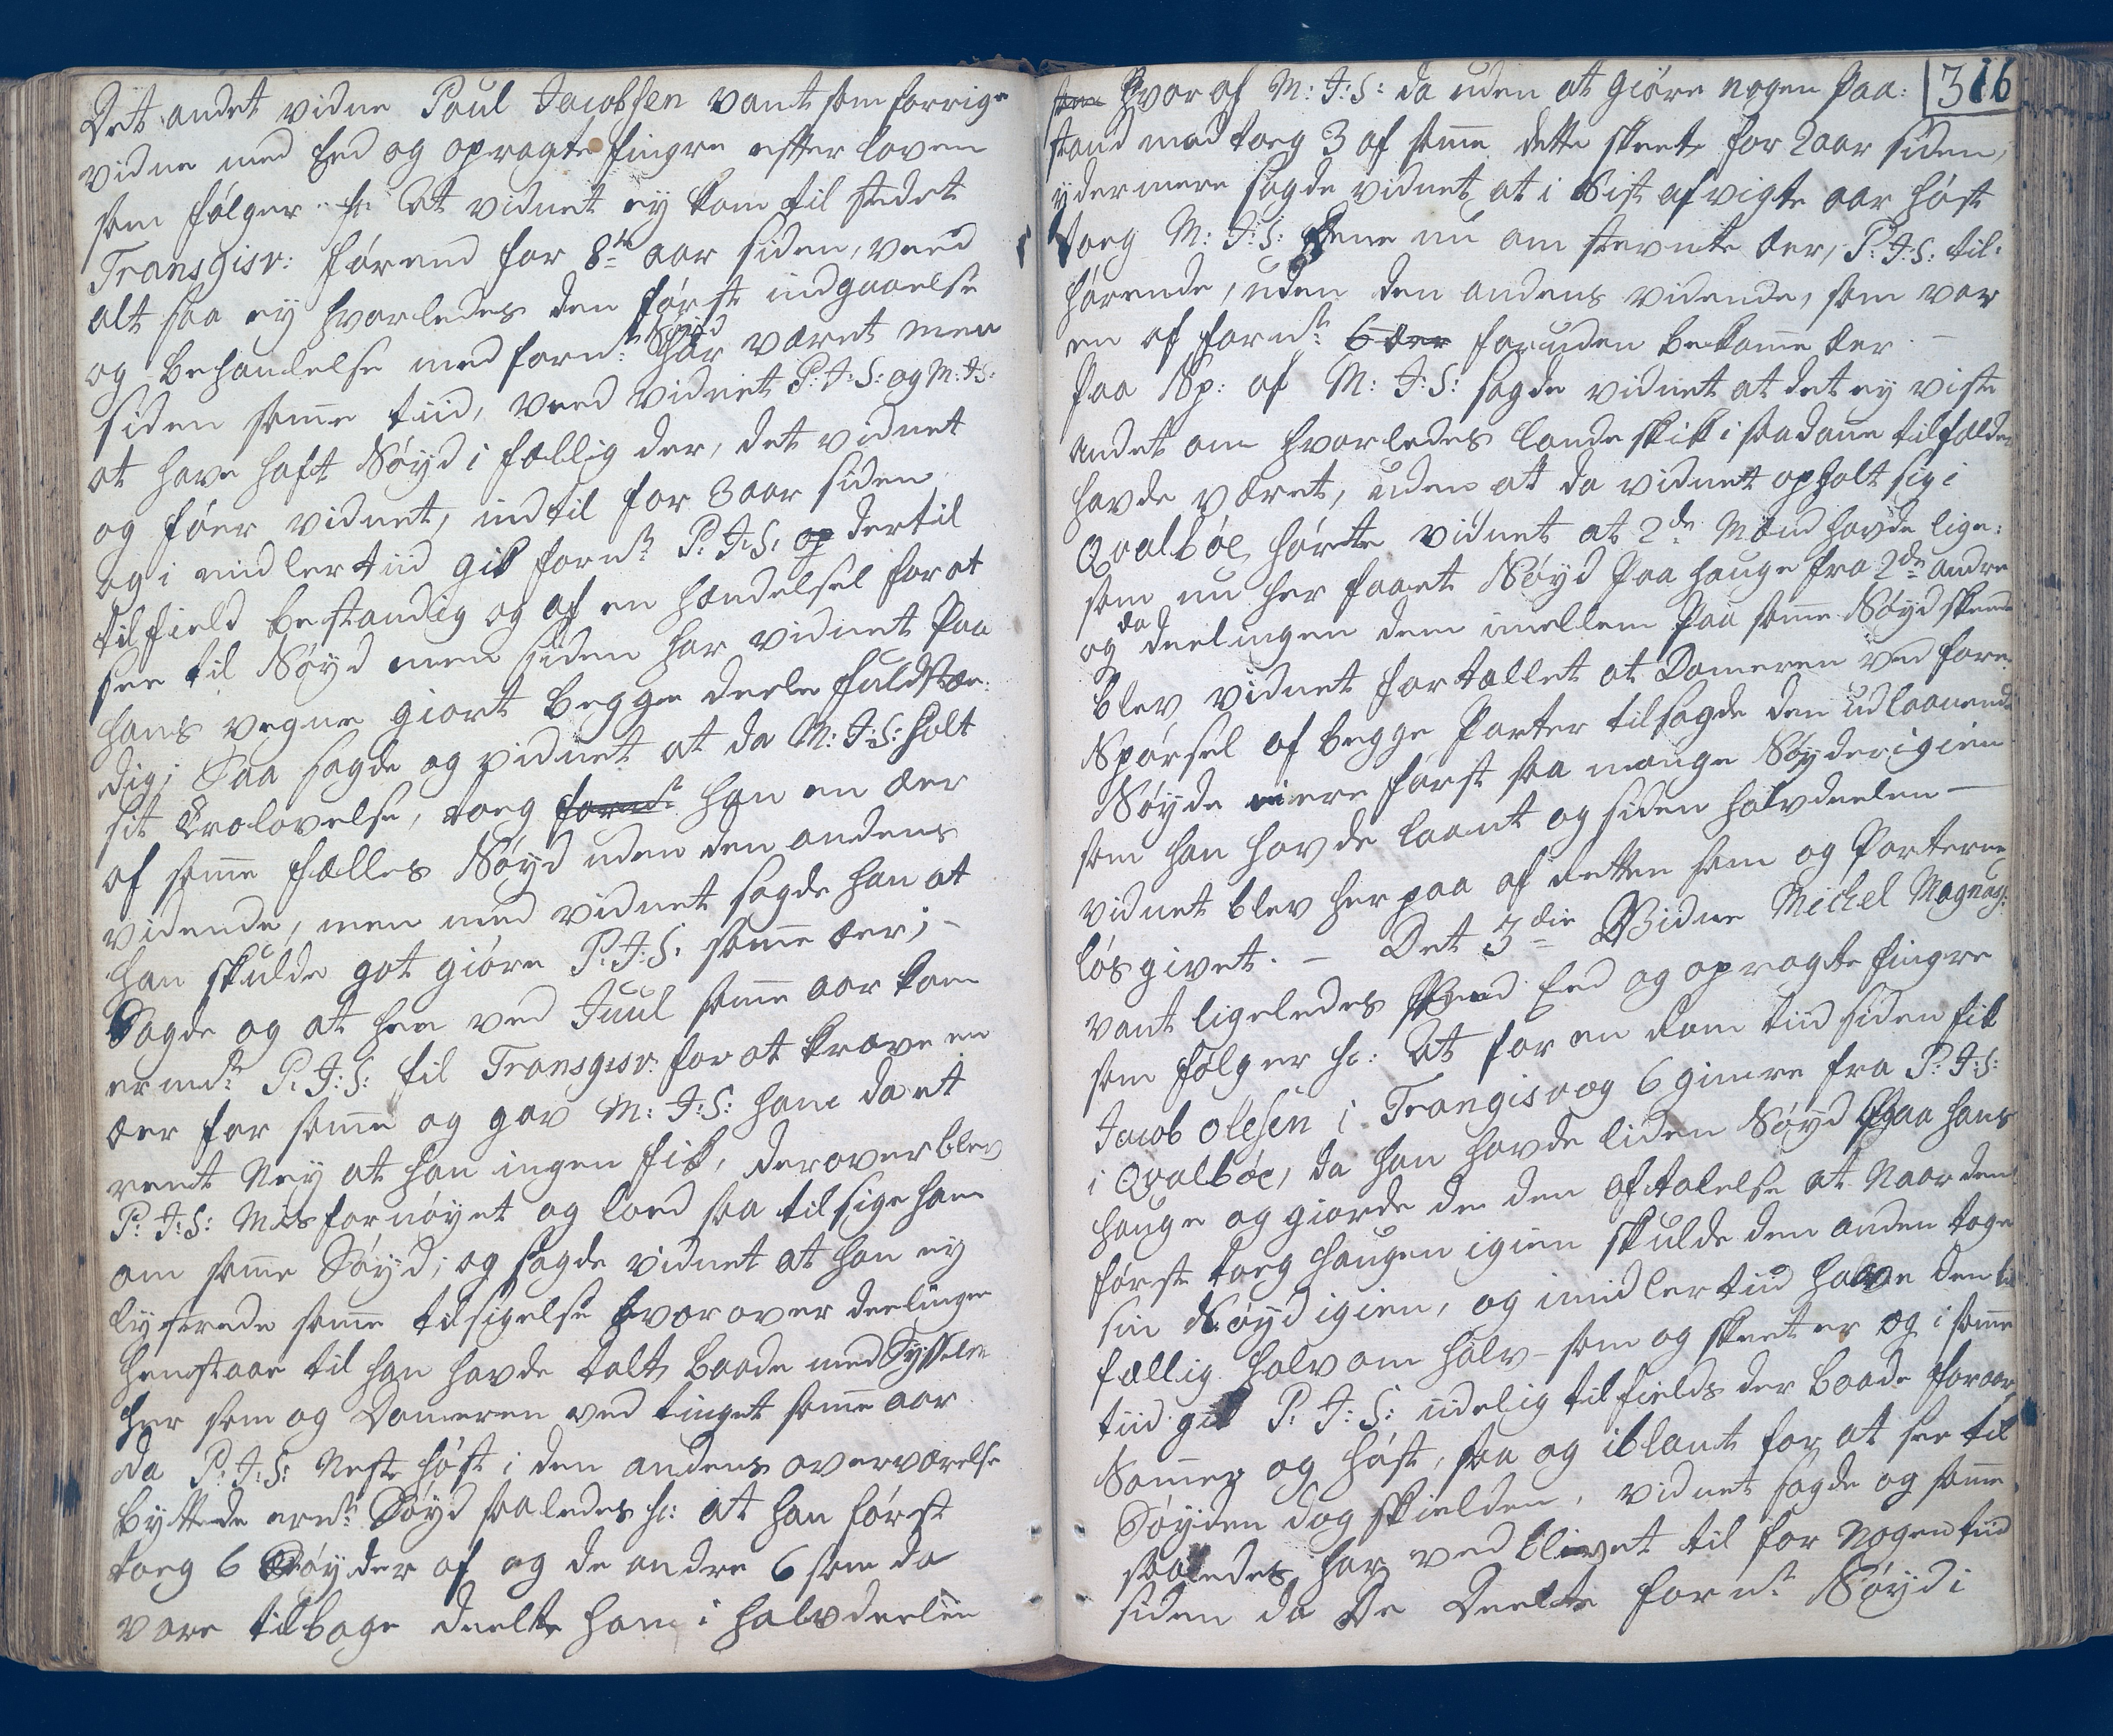 Det andet vidne Poul Jacobsen vant som forrige
vidne med Eed og opragte fingre efter loven
som følger sc: At vidnet ey kom til stedet
Trangisv: førend for 8te aar siden, veed
alt saa ey hvorledes den først indgaaelse
og behandelse med fornt: Søyd har været men
siden somme tiid, veed vidnet P: J: S: og M: J: S:
at have haft Søyd i fællig der, det vidnet
og føer vidnet, indtil for 3 aar siden
og i midlertiid gik fornt: P: J: S: op dertil
til field bestandig og af en hændelsel for at
see til Søyd men siden har vidnet paa
hans vegne giort begge deele fuldstæn:
dig; Saa sagde og vidnet at da M: J: S: holt
sit Trolovelse, toeg fornt: han en Ær
af somme fælles Søyd uden den andens
vidende, men med vidnet sagde han at
han skulde got giøre P: J: S: somme Ær; -
Sagde og at hen ved Juul somme aar kom
ermdt: P: J: S: til Trangisv: for at kræve en
Ær for somme og gav M: J: S: ham da et
rent Ney at han ingen fik, derover blev
P: J: S: Misfornøyet og loed saa tilsige ham
om somme Søyd; og sagde vidnet at han ey
lystrede somme tilsigelse hvorover deelingen
henstaar til han havde talt baade med Sysselm
her som og Dommeren ved tinget somme aar
da P: J: S: Neste høst i den andens overværelse
byttede ermt: Søyd saaledes sc: at han først
toeg 6 Søyder af og de andre 6 som da
vare tilbage deelte ham i halvdeelen
316
som hvor af M: J: S: da uden at giøre nogen Paa:
stand med toeg 3 af somme dette skeete for 2 aar siden,
ydermere sagde vidnet at i Sist afvigte aar høst
toeg M: J: S: Eene nu om stevnte Ær, P: J: S: til:
hørende, uden den andens vidende, som var
en af fornt: 6 Ær foruden bekomme Ær. -
Paa Sp: af M: J: S: sagde vidnet at det ey viste
andet om hvorledes lands skik i saadanne tilfælde
havde været, uden at da vidnet opholt sig i
Qvalbøe hørte vidnet at 2de Mænd havde lige:
som nu her faaet Søyd Paa hauge fra 2de andre
og da deelingen dem imellem Paa somme Søyd skeede
blev vidnet fortællet at Dommeren ved fore:
Spørsel af begge Parter tilsagde den udlaanende
Søyde eiere først saa mange Søyder igien
som han havde laant og siden halvdeelen -
vidnet blev her paa af retten som og Parterne
løs givet. - Det 3die Vidne Michel Magnus:
vant ligeledes med Eed og opragte fingre
som følger sc: At for en Rom tiid siden fik
Jacob Olesen i Trangisvog 6 gimre fra P: J: S:
i Qvalbøe, da han havde liden Søyd Paa hans
hauge og giorde de den aftalelse at Naar den
første toeg haugen igien skulde den anden tage
sin Søyd igien, og imidlertiid have den til
fællig halv om halv - som og skeet er og i somme
tiid gik P: J: S: iidelig til fields der baade foraar,
Sommer og høst, saa og iblant for at see til
Søyden dog skielden, vidnet sagde og somme
saaledes har ved blivet til for nogen tiid
siden da De Deelte fornt: Søyd i